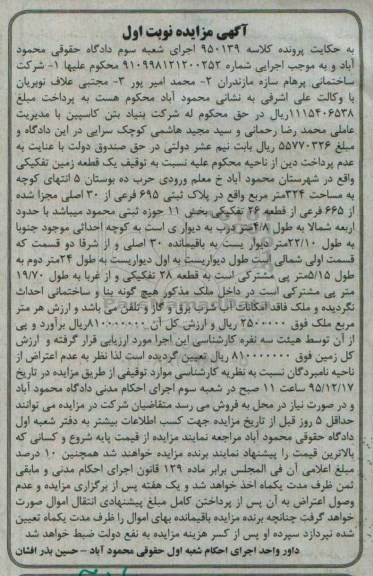 آگهی مزایده نوبت اول
به حکایت پرونده کلاسه ۹۵۰۱۳۹ اجرای شعبه سوم دادگاه حقوقی محمود
آباد و به موجب اجرایی شماره ۹۱۰۹۹۸۱۲۱۲۰۰۲۵۲ محکوم علیها ۱- شرکت
ساختمانی پرهام سازه مازندران ۲- محمد امیر پور ۳- مجتبی علاف نوبریان
با وکالت علی اشرفی به نشانی محمود آباد محکوم هست به پرداخت مبلغ
۱۱۱۵۴۰۶۵۳۸ریال در حق محکوم له شرکت بنیاد بتن کاسپین با مدیریت
عاملی محمد رضا رحمانی و سید مجید هاشمی کوچک سرایی در این دادگاه و
مبلغ ۵۵۷۷۰۳۲۶ ریال بابت نیم عشر دولتی در حق صندوق دولت با عنایت به
عدم پرداخت دین از ناحیه محکوم علیه نسبت به توقیف یک قطعه زمین تفکیکی
واقع در شهرستان محمود آباد خ معلم ورودی حرب ده بوستان ۵ انتهای کوچه
به مساحت ۳۲۴متر مربع واقع در پلاک ثبتی ۶۹۵ فرعی از ۳۰ اصلی مجزا شده
از ۶۶۵ فرعی از قطعه ۲۶ تفکیکی بخش ۱۱ حوزه ثبتی محمود میباشد با حدود
اربعه شمالا به طول ۴/۸متر درب به دیوار ی است به کوچه احداثی موجود جنوبا
به طول ۲۲/۱۰متر دیوار یست به باقیمانده ۳۰ اصلی و از شرقا دو قسمت که
قسمت اولی شمالی است طول دیواریست به اول دیواریست به طول ۲۴متر دوم به
طول ۵/۱۵متر پی مشترکی است به قطعه ۲۸ تفکیکی و از غربا به طول ۱۹/۷۰
متر پی مشترکی است در داخل ملک مذکور هیچ گونه بنا و ساختمانی احداث
نگردیده و ملک فاقد امکانات آب شرب برق و گاز و تلفن می باشد و ارزش هر متر
مربع ملک فوق ۲۵۰۰۰۰۰ ریال و ارزش کل آن ۸۱۰۰۰۰۰۰۰ریال برآورد و پی
از آن توسط هیئت سه نفره کارشناسی این اجرا مورد ارزیابی قرار گرفته و ارزش
کل زمین فوق ۸۱۰۰۰۰۰۰۰ ریال تعیین گردیده است لذا نظر به عدم اعتراض از
ناحیه نامبردگان نسبت به نظریه کارشناسی موارد توقیفی از طریق مزایده در تاریخ
۹۵/۱۲/۱۷ ساعت ۱۱ صبح در شعبه سوم اجرای احکام مدنی دادگاه محمود آباد
و در صورت نیاز در محل به فروش می رسد متقاضیان شرکت در مزایده می توانند
حداقل ۵ روز قبل از تاریخ مزایده جهت کسب اطلاعات بیشتر به دفتر شعبه اول
دادگاه حقوقی محمود آباد مراجعه نمایند مزایده از قیمت پایه شروع و کسانی که
بالاترین قیمت را پیشنهاد نمایند برنده مزایده خواهند شد همچنین ۱۰ درصد
مبلغ اعلامی آن فی المجلس برابر ماده ۱۲۹ قانون اجرای احکام مدنی و مابقی
ثمن ظرف مدت یکماه اخذ خواهد شد و یک هفته پس از برگزاری مزایده و عدم
وصول اعتراض به آن پس از پرداختن کامل مبلغ پیشنهادی انتقال اموال صورت
خواهد گرفت چنانچه برنده مزایده باقیمانده بهای اموال را ظرف مدت یکماه تعیین
شده نپردازد سپرده او پس از کسر هزینه مزایده به نفع دولت ضبط خواهد شد
داور واحد اجرای احکام شعبه اول حقوقی محمود آباد – حسین بذر افشان